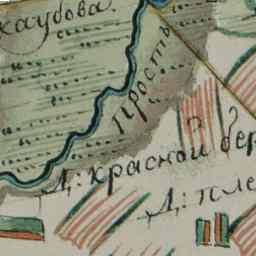 хаубова.
Прость
Д: красной бе
Д: пле